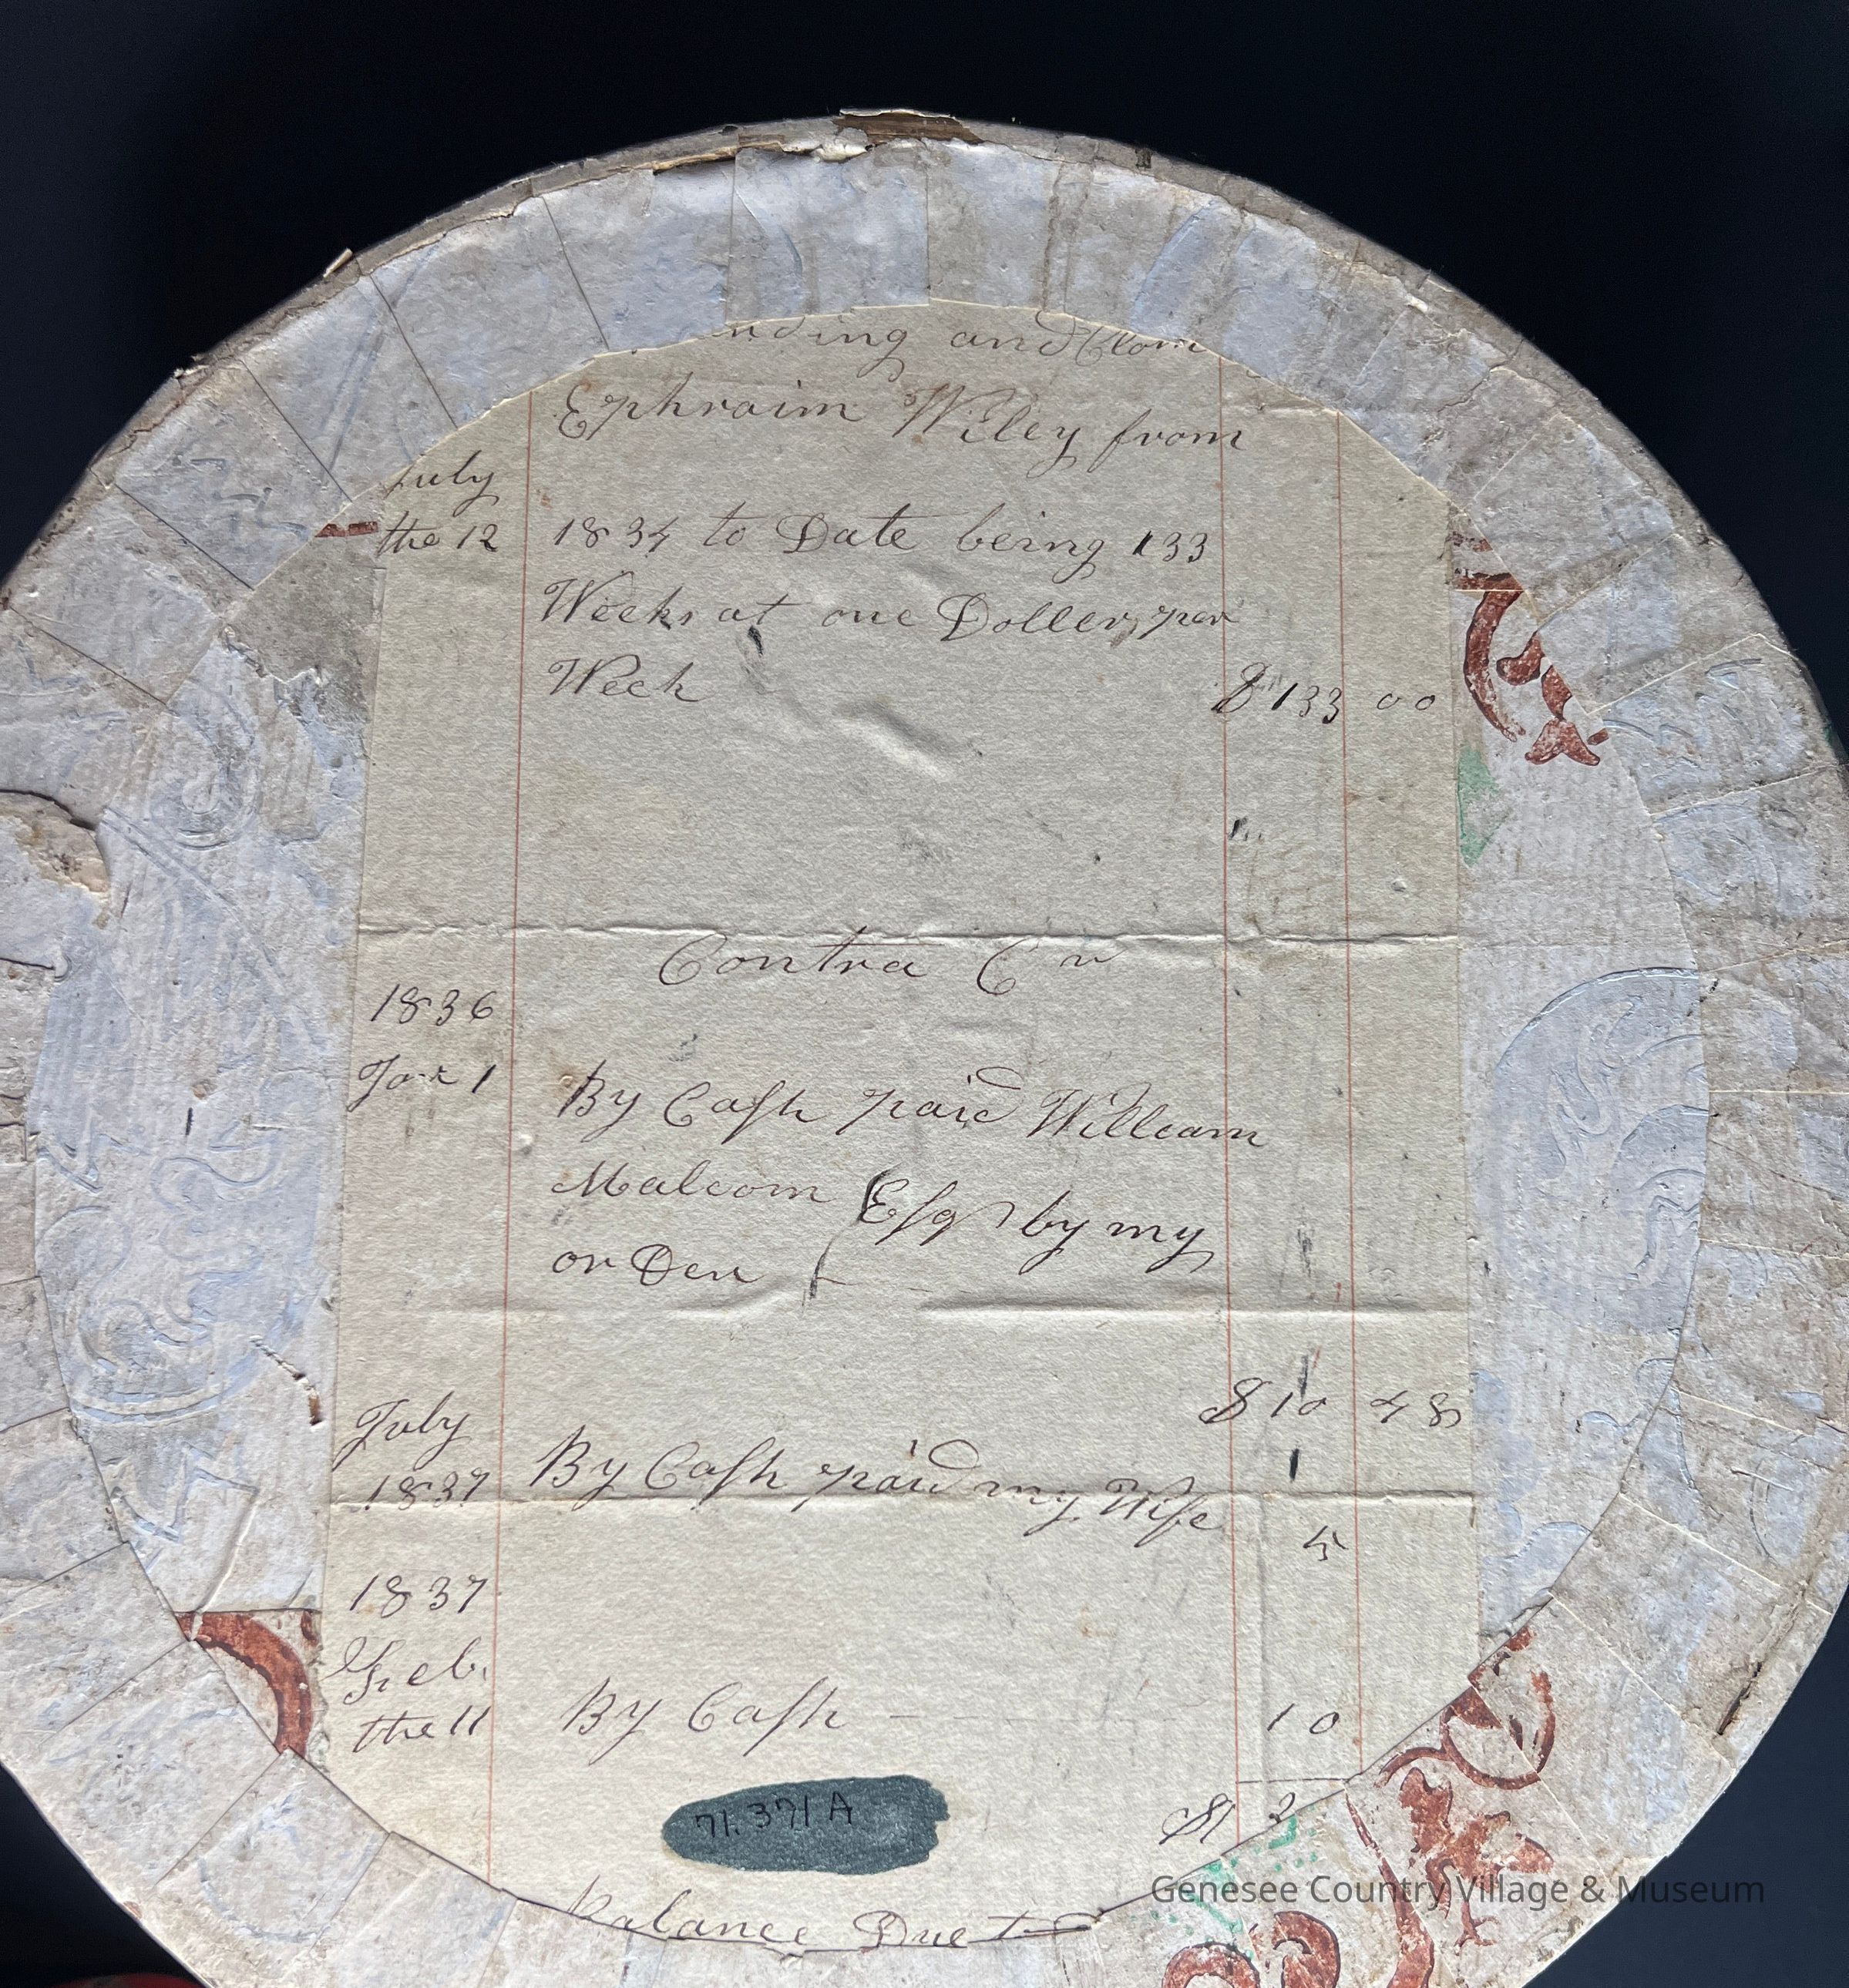 nding and Clom
Ephraim Wiley from
July
the 12 1834 to Date being 133
Weeks at one Doller, per
Week $133 00
Contra Cr
1836
Jan 1 By Cash paid William
Malcom Esqr by my
order
$10 48
July
1837 By Cash paid my Wife 5
1837
Feb.
the 11 By Cash 10
71.371 A
Balance Due to
Genesee Country Village & Museum